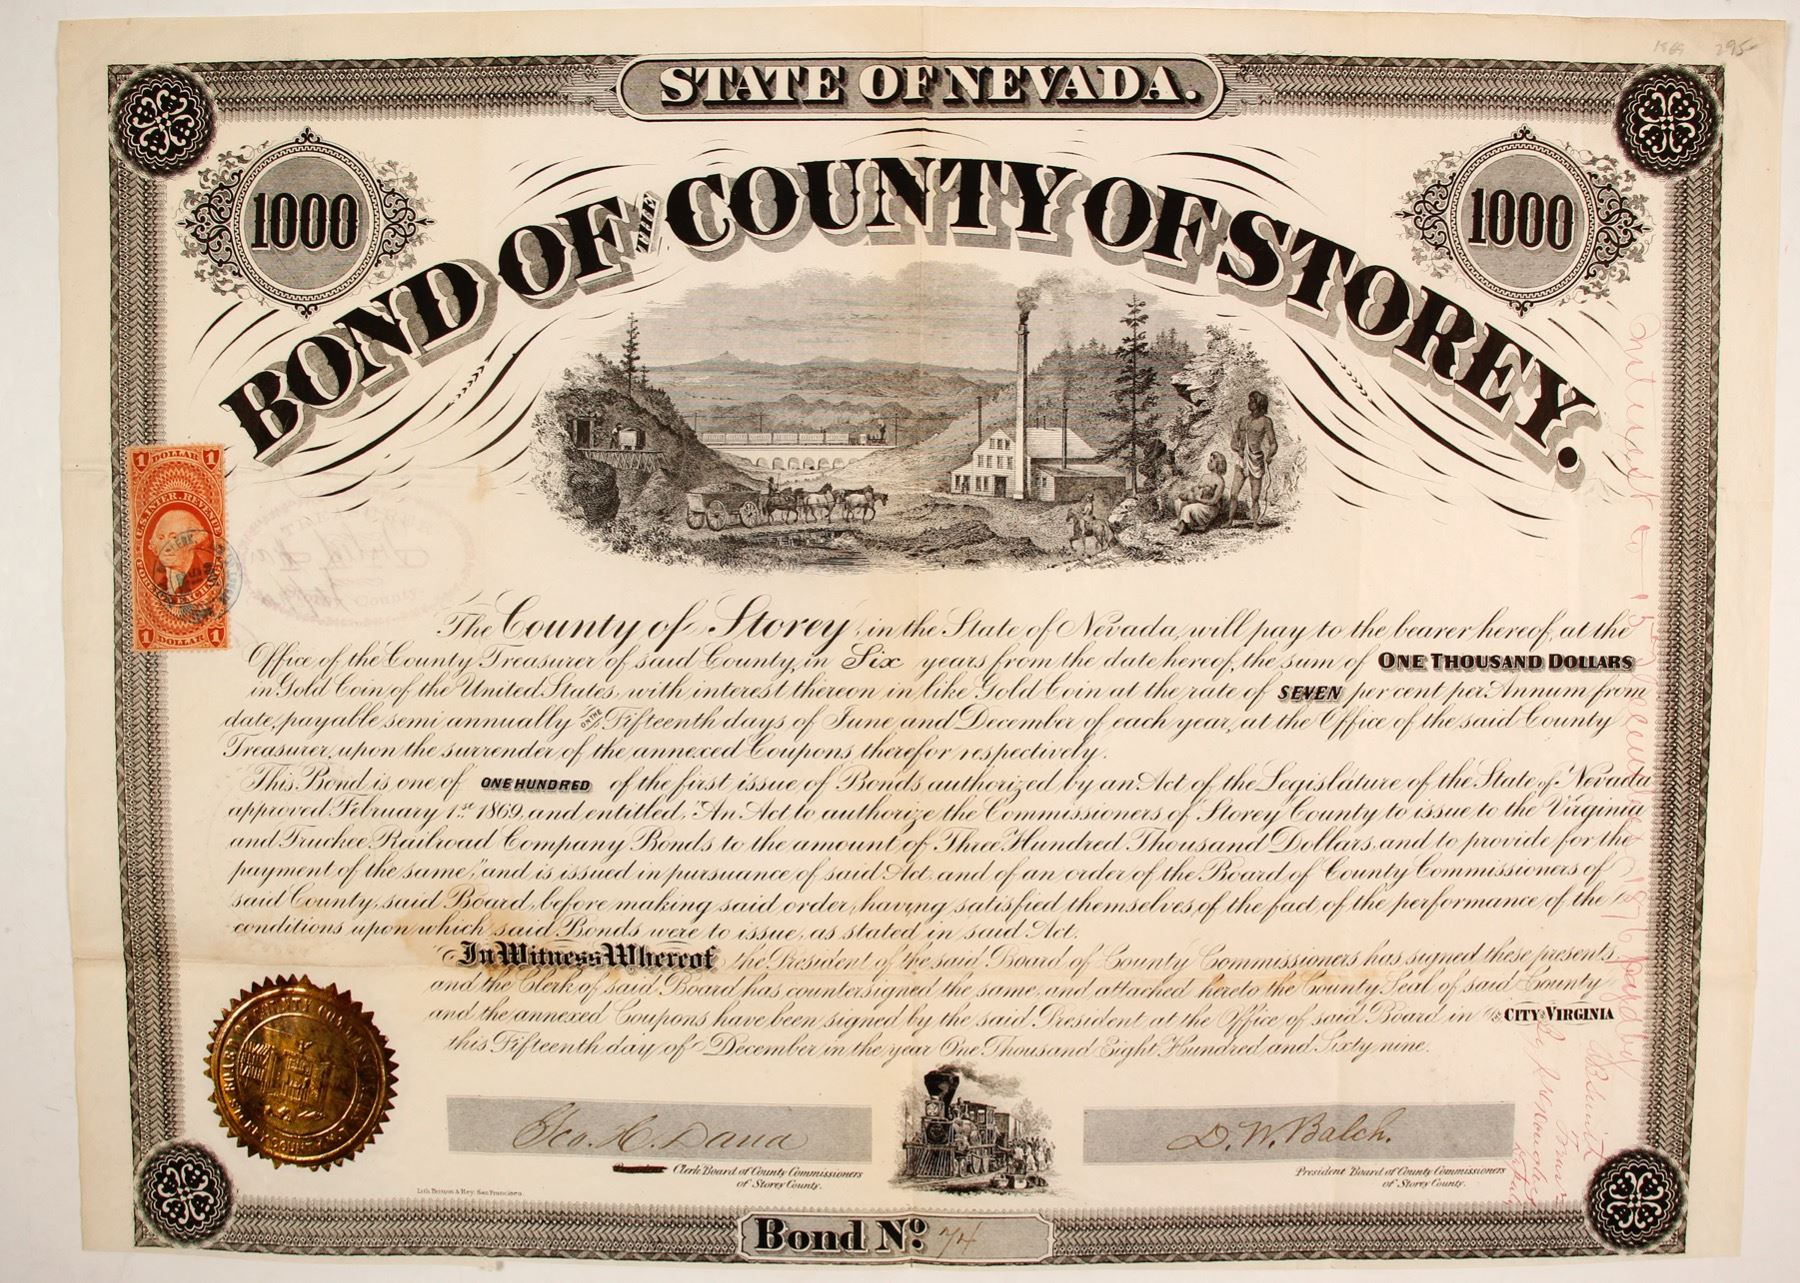 1869 295
STATE OF NEVADA.
1000
1000
BOND OF THE COUNTY OF STOREY.
1 DOLLAR 1
U.S. INTER. REVENUE
FOREIGN EXCHANGE
1 DOLLAR 1
The County of Storey, in the State of Nevada, will pay to the bearer hereof, at the
Office of the County Treasurer of said County, in Six years from the date hereof, the sum of ONE THOUSAND DOLLARS
in Gold Coin of the United States, with interest thereon in like Gold Coin at the rate of SEVEN per cent per Annum from
date, payable semi annually ON THE Fifteenth days of June and December of each year, at the Office of the said County
Treasurer, upon the surrender of the annexed Coupons therefor respectively.
This Bond is one of ONE HUNDRED of the first issue of Bonds authorized by an Act of the Legislature of the State of Nevada
approved February 1st 1869, and entitled, "An Act to authorize the Commissioners of Storey County to issue to the Virginia
and Truckee Railroad Company Bonds to the amount of Three Hundred Thousand Dollars, and to provide for the
payment of the same," and is issued in pursuance of said Act, and of an order of the Board of County Commissioners of
said County, said Board, before making said order, having satisfied themselves of the fact of the performance of the
conditions upon which said Bonds were to issue, as stated in said Act.
In Witness Whereof the President of the said Board of County Commissioners has signed these presents
and the Clerk of said Board has countersigned the same, and attached hereto the County Seal of said County
and the annexed Coupons have been signed by the said President at the Office of said Board in the CITY OF VIRGINIA
this Fifteenth day of December in the year One Thousand Eight Hundred and Sixty nine.
Geo. H. Dana
Clerk Board of County Commissioners
of Storey County.
D. W. Balch.
President Board of County Commissioners
of Storey County.
Lith. Britton & Rey, San Francisco
Bond No. 74
Interest to 15 December 1876 paid by